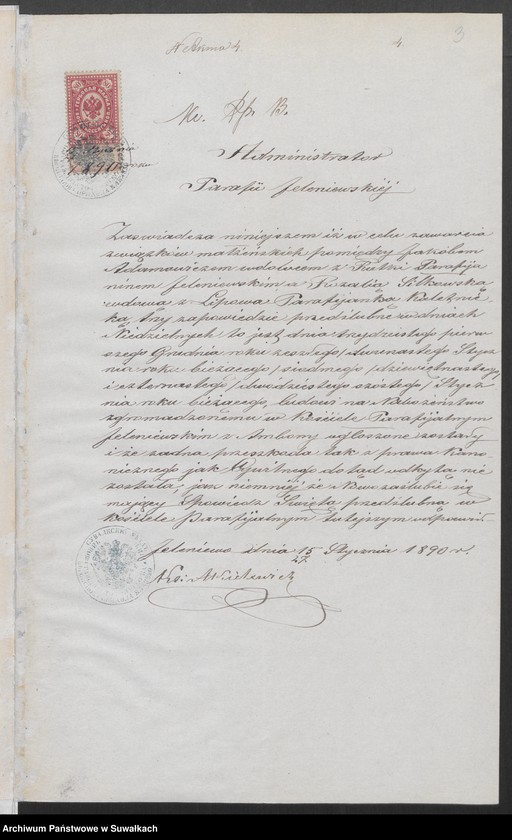 N Anma 4. 4. 3
Kr. Rp. B.
Administrator
Parafii Jeleniewskiéj
Zaświadcza niniejszem iż w celu zawarcia
związków małżeńskich pomiędzy Jakóbem
Adamowiczem wdowcem z Hutki Parafija
ninem Jeleniewskim a Rozalia Sitkowska
wdowa z Lipowa Parafijanka Kaletnic
ka, trzy zapowiedzie przedślubne w dniach
Niedzielnych to jest dnia trzydziestego pierw
szego Grudnia roku zeszłego /dwunastego Stycz
nia roku bieżącego/ siódmego /dziewiętnastego/
i czternastego /dwudziestego szóstego/ Stycz
nia roku bieżącego, ludowi na Nabożeństwo
zgromadzonemu w Kościele Parafijalnym
Jeleniewskim z Ambony ogłoszone zostały
i że żadna przeszkoda tak z prawa Kano
nicznego jak Cywilnego dotąd odkryta nie
została, jak niemniej że Nowozaślubić się
mający Spowiedź Święta przedślubna w
Kościele Parafijalnym tutejszym odprawił.
Jeleniewo dnia 15/27 Stycznia 1890 r.
Archiwum Państwowe w Suwałkach